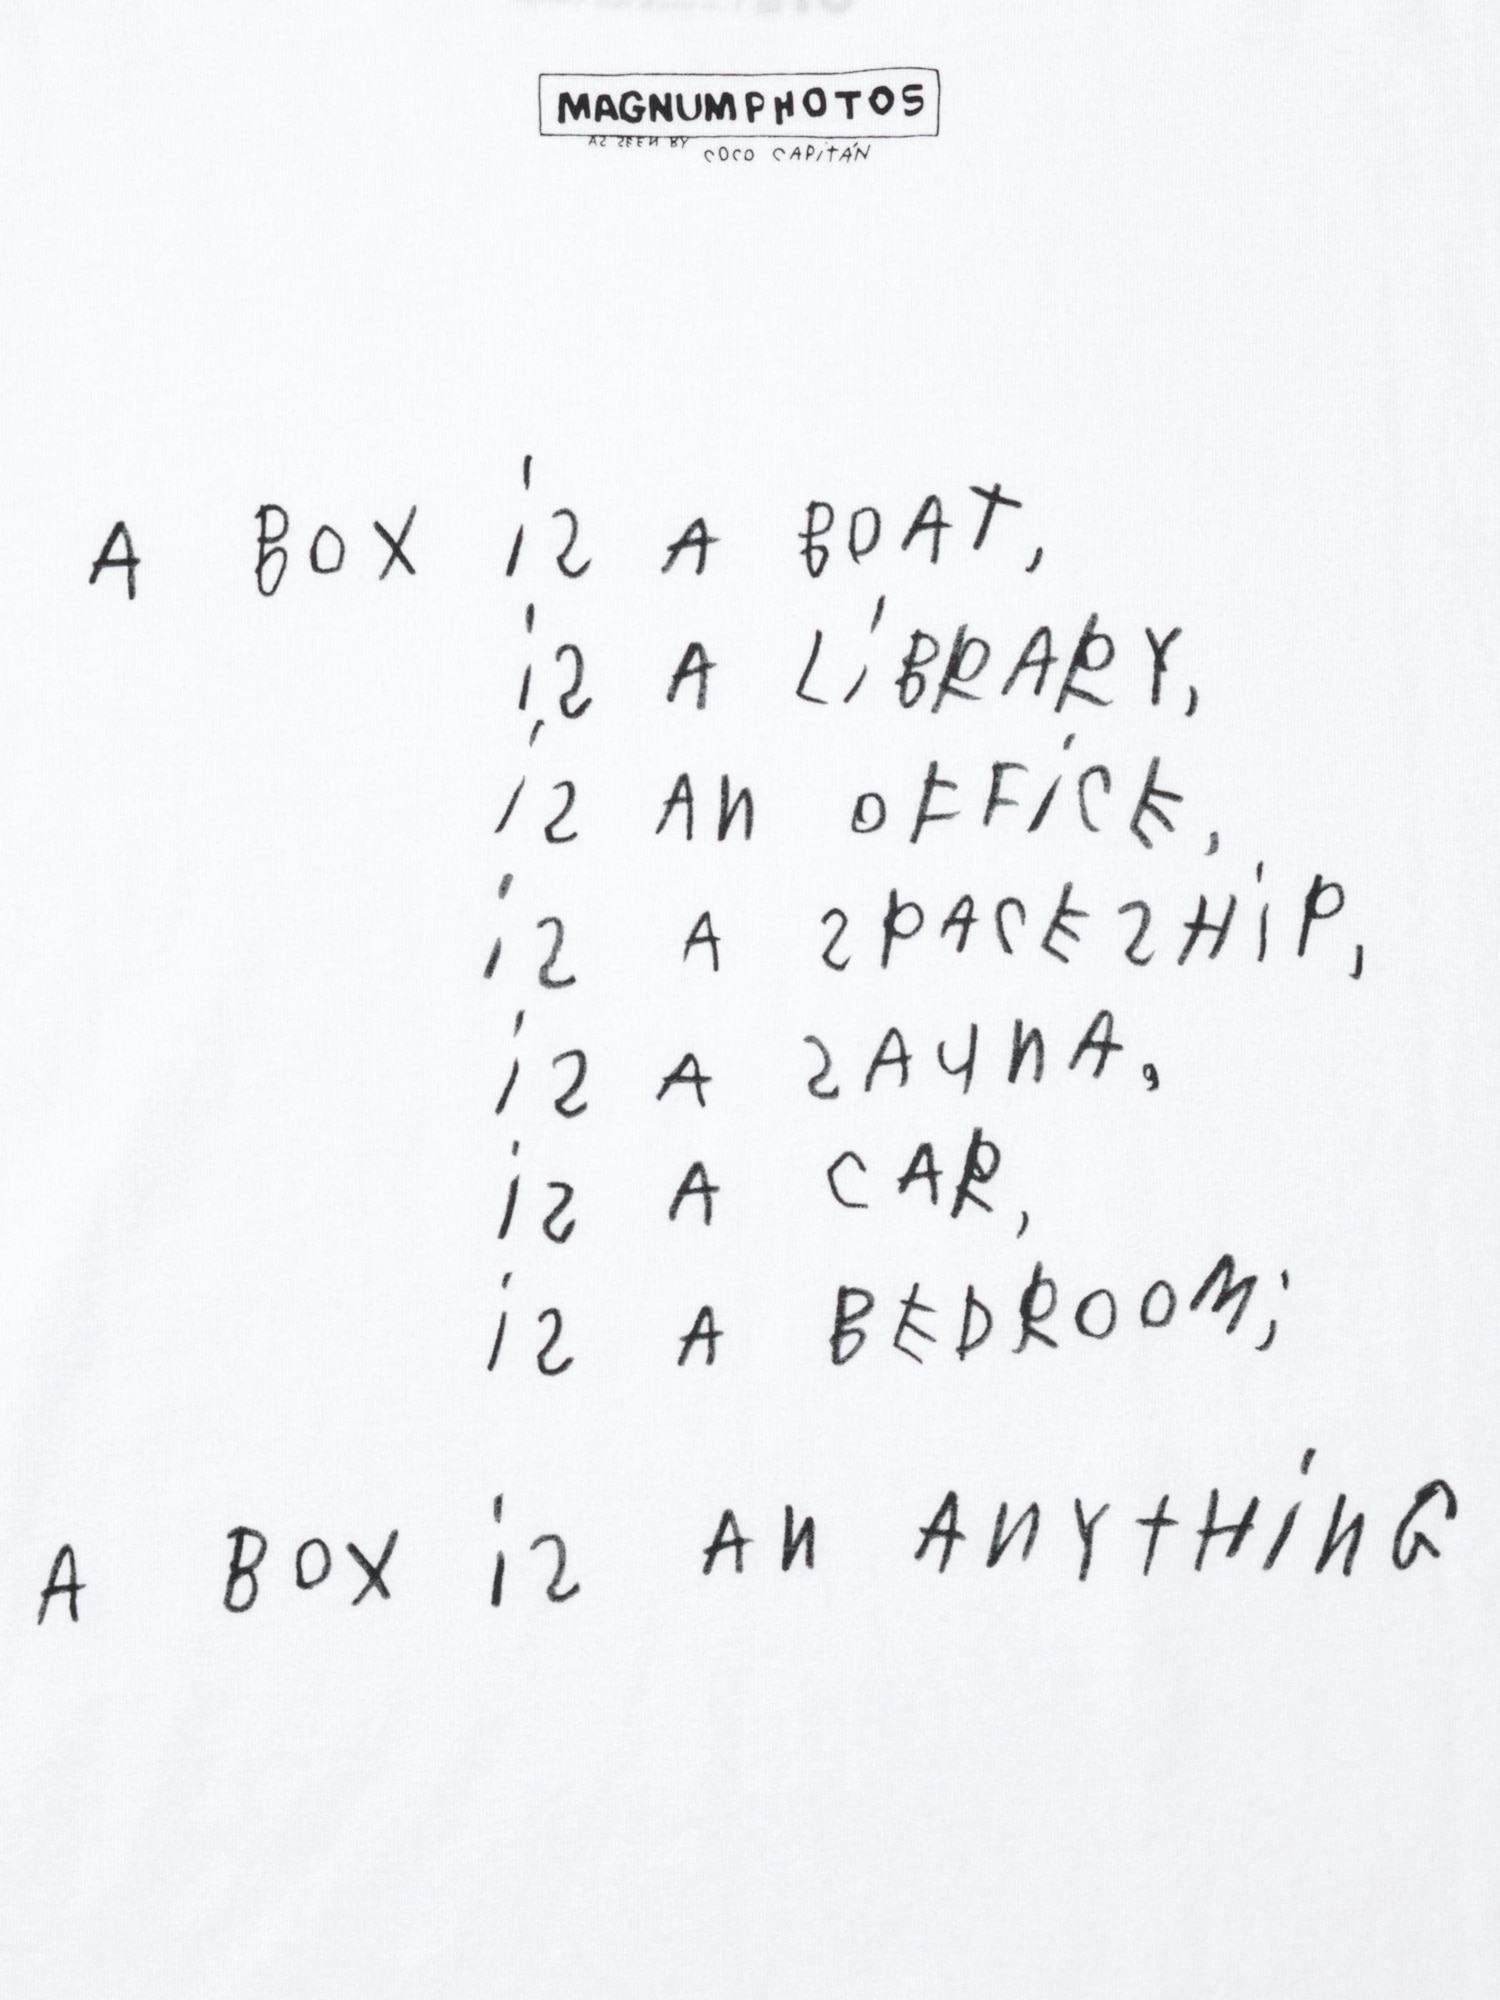 MAGNUM PHOTOS
AS SEEN BY COCO CAPITÁN
A BOX iS A BOAT,
iS A LiBRARY,
iS AN OFFiCE,
iS A SPACESHiP,
iS A SAUNA,
iS A CAR,
iS A BEDROOM;
A BOX iS AN ANYTHiNG